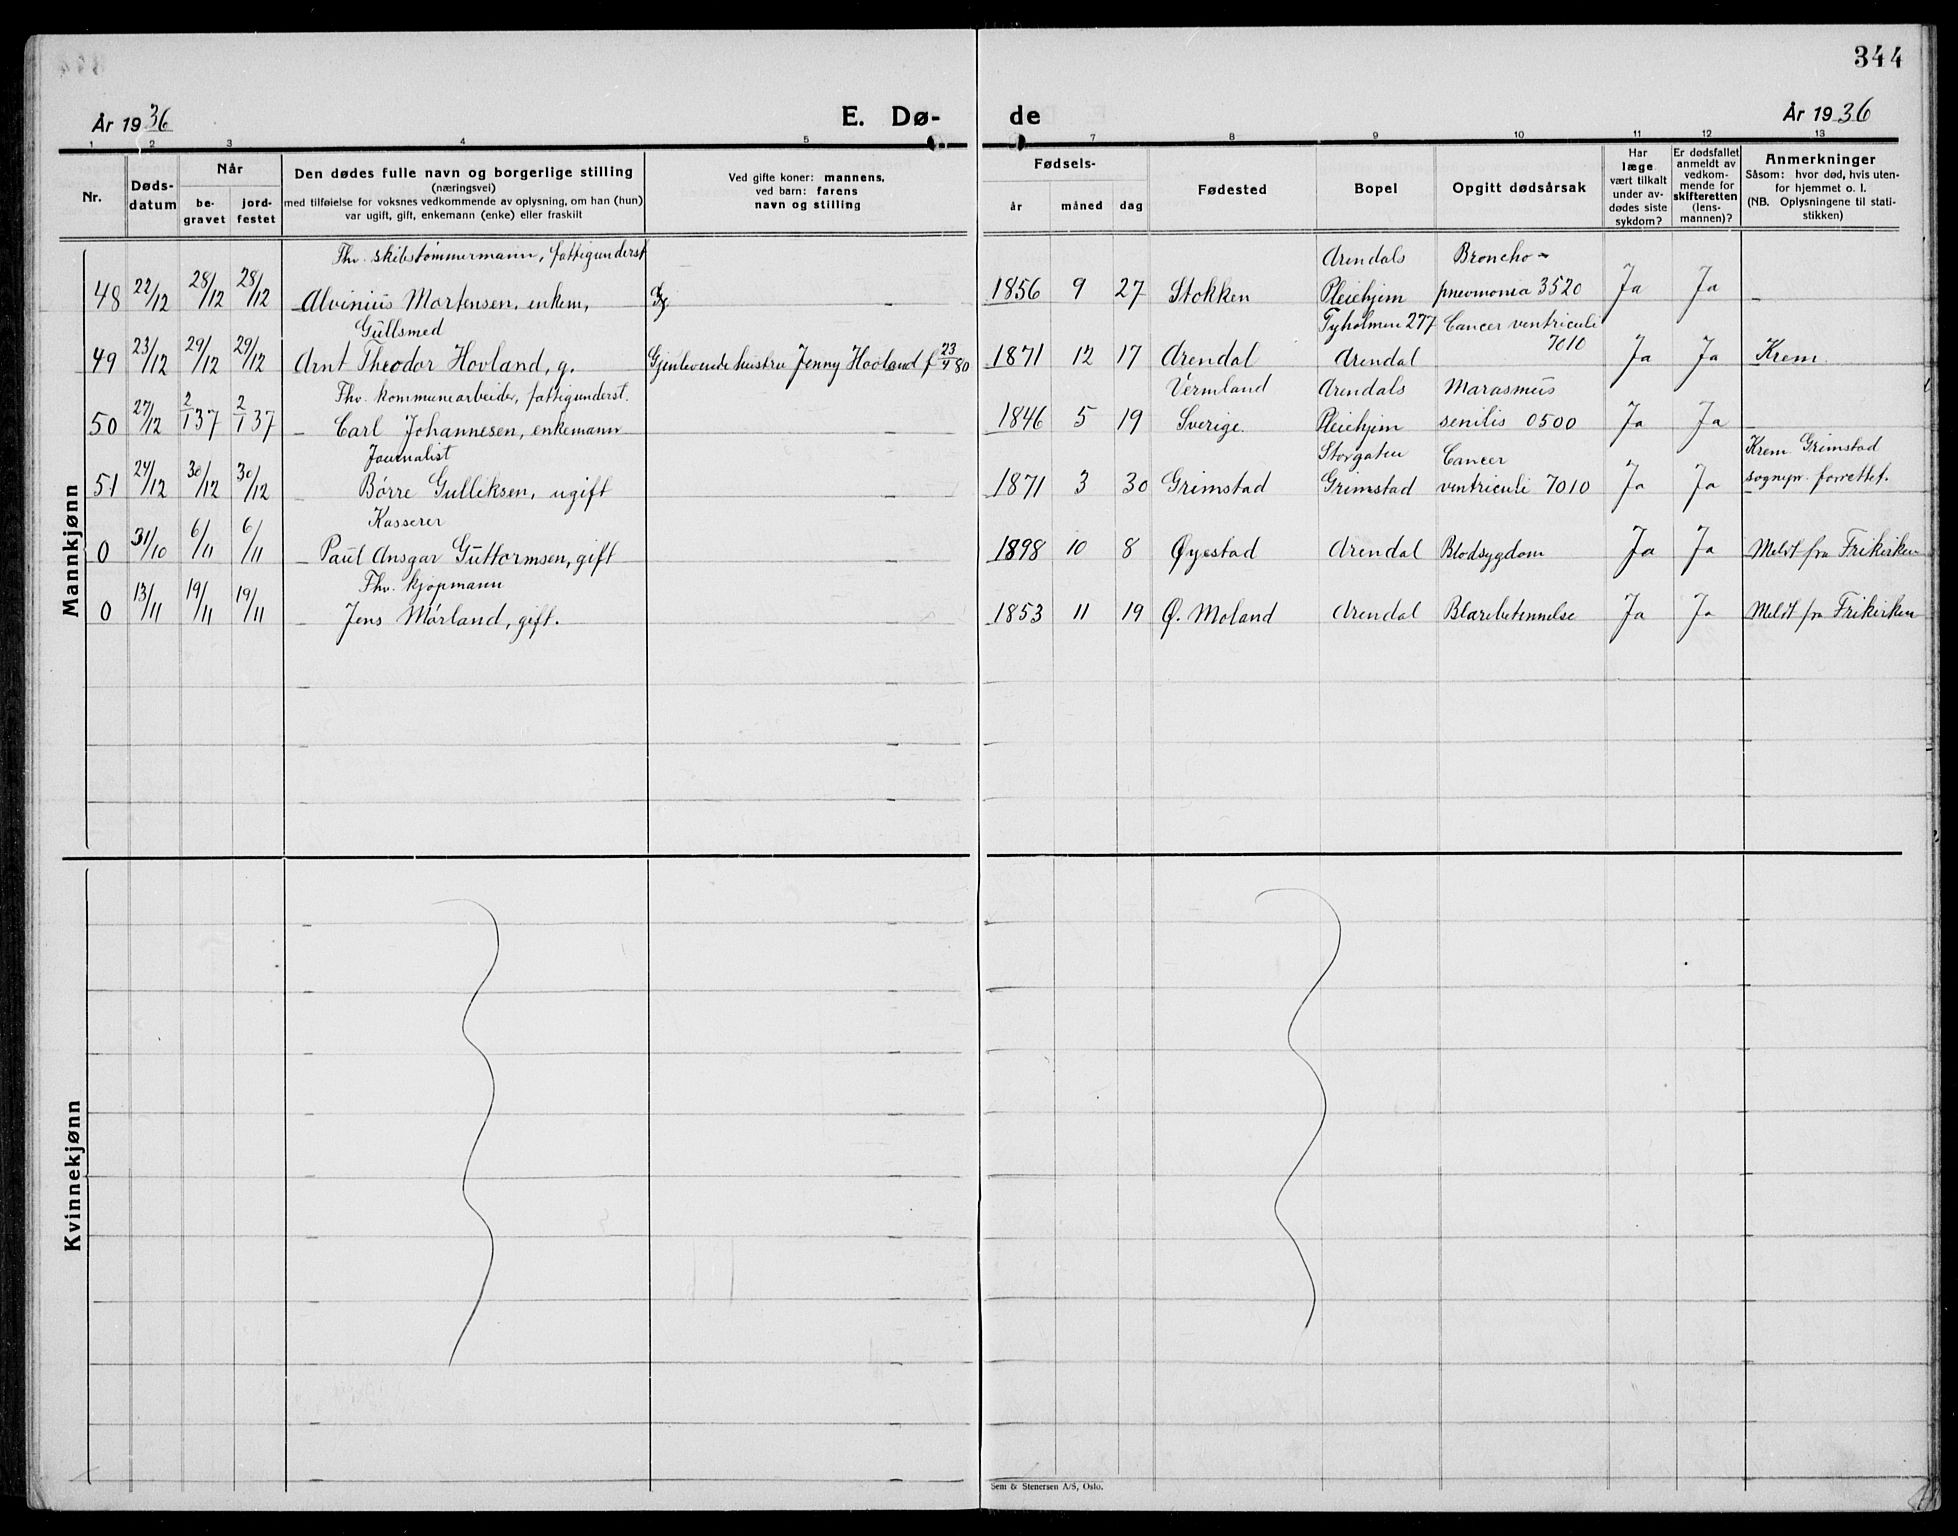 344
År 1936
E. Dø-
de
År 1936
1 2 3 4 5 7 8 9 10 11 12 13
Nr.
Døds-
datum
Når
be-
gravet
jord-
festet
Den dødes fulle navn og borgerlige stilling
(næringsvei)
med tilføielse for voksnes vedkommende av oplysning, om han (hun)
var ugift, gift, enkemann (enke) eller fraskilt
Ved gifte koner: mannens,
ved barn: farens
navn og stilling
Fødsels-
år måned dag
Fødested
Bopel
Opgitt dødsårsak
Har
læge
vært tilkalt
under av-
dødes siste
sykdom?
Er dødsfallet
anmeldt av
vedkom-
mende for
skifteretten
(lens-
mannen)?
Anmerkninger
Såsom: hvor død, hvis uten-
for hjemmet o. l.
(NB. Oplysningene til stati-
stikken)
Mannkjønn
Fhv. skibstømmermann, fattigunderst Arendals Broncho-
48 22/12 28/12 28/12 Alvinius Mortensen, enkem, 1856 9 27 Stokken Pleiehjem pneumonia 3520 Ja Ja
Gullsmed Tyholmen 277 Cancer ventriculi
7010
49 23/12 29/12 29/12 Arnt Theodor Hovland, g. Gjenlevende hustru Jenny Hovland f 23/9 80 1871 12 17 Arendal Arendal Ja Ja Krem.
Fhv. kommunearbeider, fattigunderst. Vermland Arendals Marasmus
50 27/12 2/1 37 2/1 37 Carl Johannesen, enkemann 1846 5 19 Sverige. Pleiehjem senilis 0500 Ja Ja
Journalist Storgaten Cancer Krem. Grimstad
51 24/12 30/12 30/12 Børre Gulliksen, ugift 1871 3 30 Grimstad Grimstad ventriculi 7010 Ja Ja sognepr. forrettet.
Kasserer
0 31/10 6/11 6/11 Paul Ansgar Guttormsen, gift 1898 10 8 Øyestad Arendal Blodsygdom Ja Ja Meldt fra Frikirken
Fhv. kjøpmann
0 13/11 19/11 19/11 Jens Mørland, gift. 1853 11 19 Ø. Moland Arendal Blærebetennelse Ja Ja Meldt fra Frikirken
Kvinnekjønn
Sem & Stenersen A/S, Oslo.